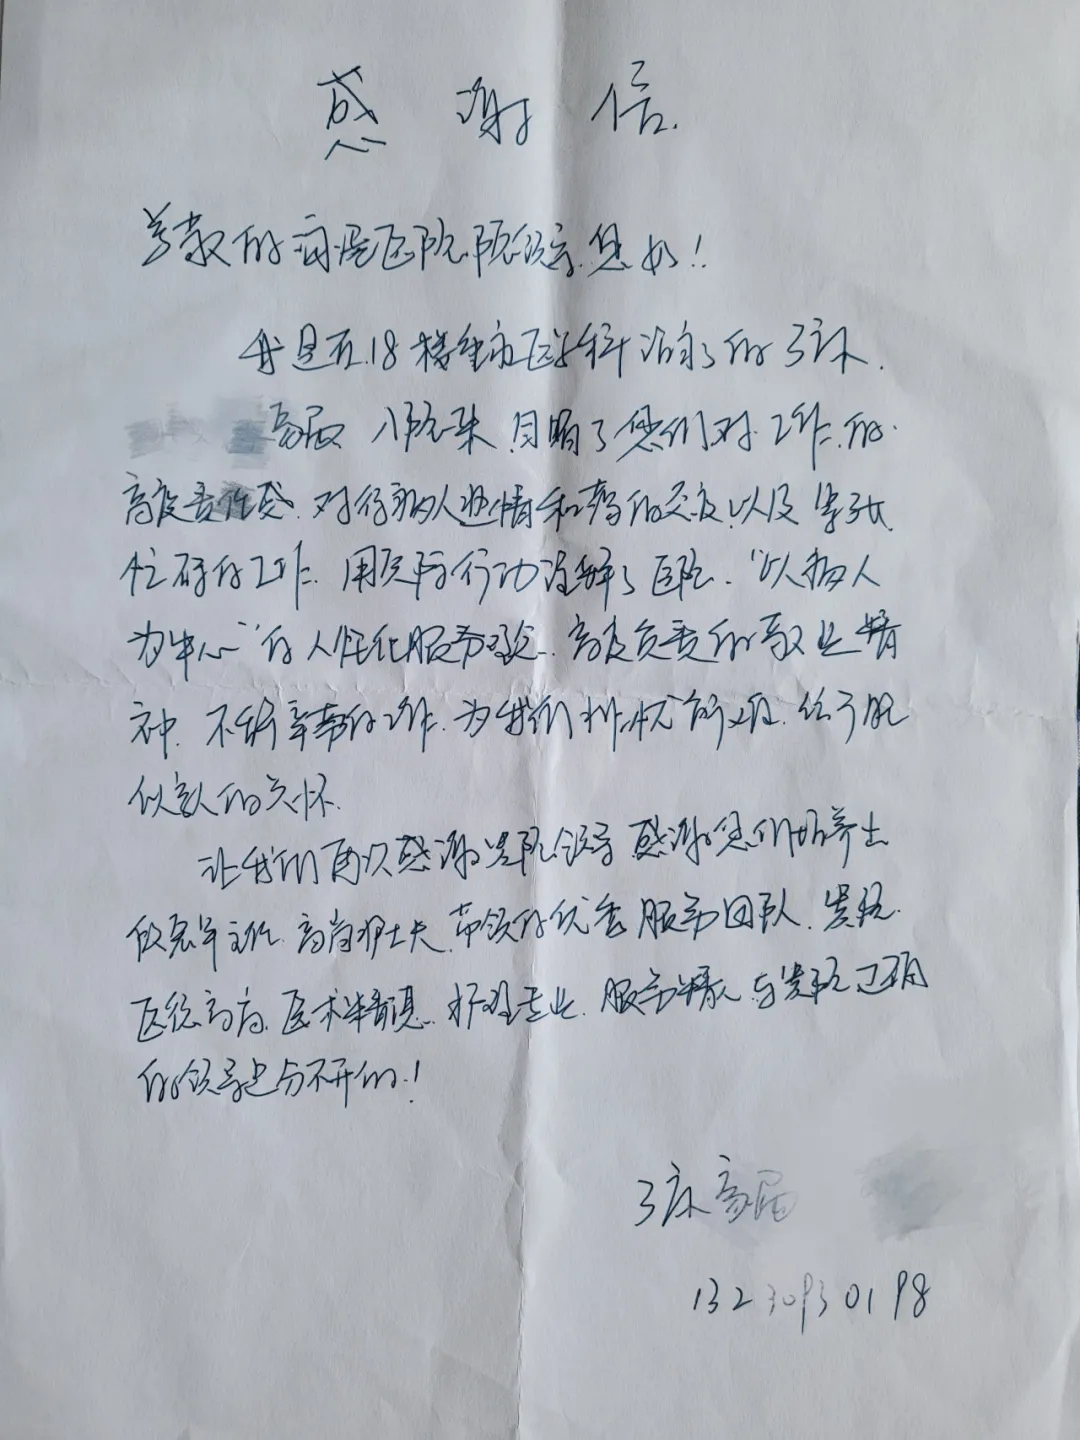 感谢信
尊敬的 医院院领导.您好!
我是在18楼重症医学科治疗的3床.
家属 入院来 目睹了您们对工作的
高度责任感.对待病人热情和蔼的态度以及紧张
忙碌的工作.用实际行动诠释了医院."以病人
为中心"的人性化服务理念.高度负责的敬业精
神.不辞辛劳的工作.为我们排忧解难.给予胜
似家人的关怀.
让我们再次感谢贵院领导 感谢您们培养出
主任.高 护士长.带领的优秀服务团队.贵院.
医德高尚.医术精湛.护理专业.服务 与贵院正确
的领导是分不开的!
3床家属
13230930198